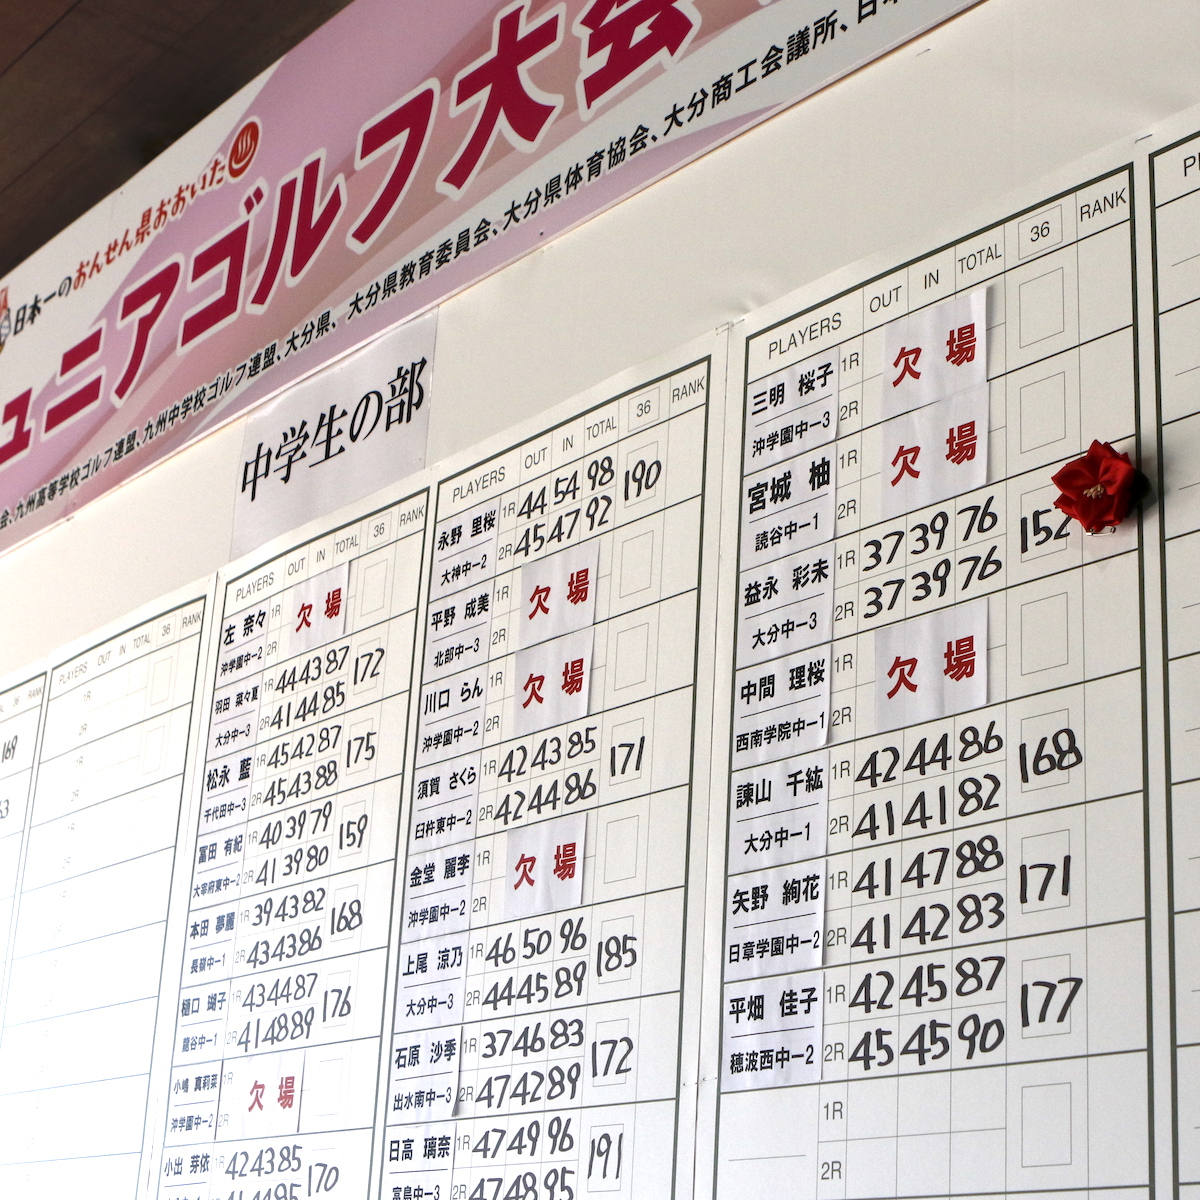 日本一のおんせん県おおいた
ュニアゴルフ大会
会、九州高等学校ゴルフ連盟、九州中学校ゴルフ連盟、大分県、大分県教育委員会、大分県体育協会、大分商工会議所、日本
中学生の部
36 RANK
169
63
PLAYERS OUT IN TOTAL 36 RANK
1R
2R
1R
2R
1R
2R
PLAYERS OUT IN TOTAL 36 RANK
左 奈々 1R 欠場
沖学園中-2 2R
羽田 菜々夏 1R 44 43 87 172
大分中-3 2R 41 44 85
松永 藍 1R 45 42 87 175
千代田中-3 2R 45 43 88
冨田 有紀 1R 40 39 79 159
大宰府東中-2 2R 41 39 80
本田 夢麗 1R 39 43 82 168
長嶺中-1 2R 43 43 86
樋口 瑚子 1R 43 44 87 176
龍谷中-1 2R 41 48 89
小嶋 真莉菜 1R 欠場
沖学園中-2 2R
小出 芽依 1R 42 43 85 170
PLAYERS OUT IN TOTAL 36 RANK
永野 里桜 1R 44 54 98 190
大神中-2 2R 45 47 92
平野 成美 1R 欠場
北部中-3 2R
川口 らん 1R 欠場
沖学園中-2 2R
須賀 さくら 1R 42 43 85 171
臼杵東中-2 2R 42 44 86
金堂 麗李 1R 欠場
沖学園中-2 2R
上尾 涼乃 1R 46 50 96 185
大分中-3 2R 44 45 89
石原 沙季 1R 37 46 83 172
出水南中-3 2R 47 42 89
日高 璃奈 1R 47 49 96 191
富島中-3 2R 47 48 95
PLAYERS OUT IN TOTAL 36 RANK
三明 桜子 1R 欠場
沖学園中-3 2R
宮城 柚 1R 欠場
読谷中-1 2R
益永 彩未 1R 37 39 76 152
大分中-3 2R 37 39 76
中間 理桜 1R 欠場
西南学院中-1 2R
諫山 千紘 1R 42 44 86 168
大分中-1 2R 41 41 82
矢野 絢花 1R 41 47 88 171
日章学園中-2 2R 41 42 83
平畑 佳子 1R 42 45 87 177
穂波西中-2 2R 45 45 90
1R
2R